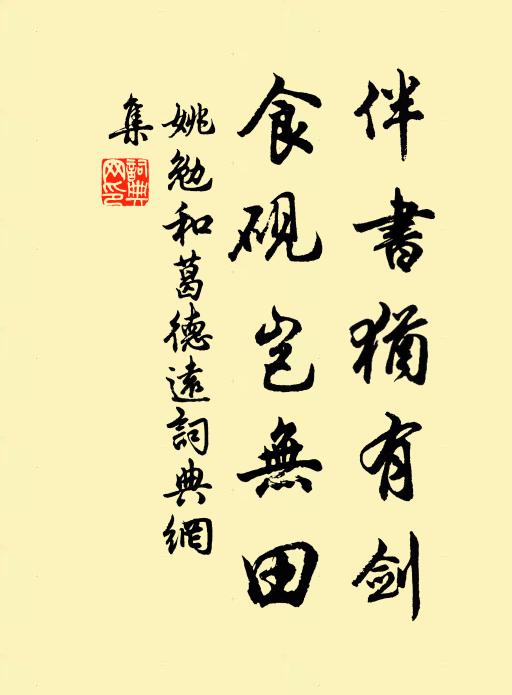 伴書猶有劍
食硯豈無田
姚勉和葛德遠詞典網
集
詞典網印